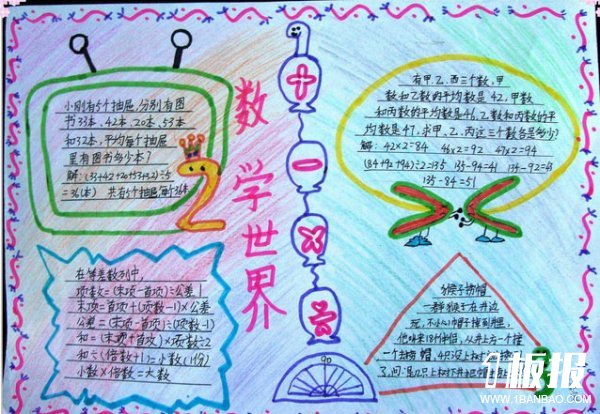 数学世界
小刚有5个抽屉,分别有图
书33本、42本、20本、53本
和32本,平均每个抽屉
里有图书多少本?
解:(33+42+20+53+32)÷5
=36(本) 共有5个抽屉,每个36本
2
有甲、乙、丙三个数,甲
数和乙数的平均数是42,甲数
和丙数的平均数是46,乙数和丙数的平
均数是47,求甲、乙、丙这三个数各是多少?
解:42×2=84 46×2=92 47×2=94
(84+92+94)÷2=135 135-94=41 134-92=43
135-84=51
+
-
×
÷
90
在等差数列中,
项数=(末项-首项)÷公差+1
末项=首项+(项数-1)×公差
公差=(末项-首项)÷(项数-1)
和=(末项+首项)×项数÷2
和÷(倍数+1)=小数(1份)
小数×倍数=大数
猴子捞帽
一群猴子在井边
玩,不小心帽子掉到井里,
他们
一个去捞帽
板报
WWW.1BANBAO.COM